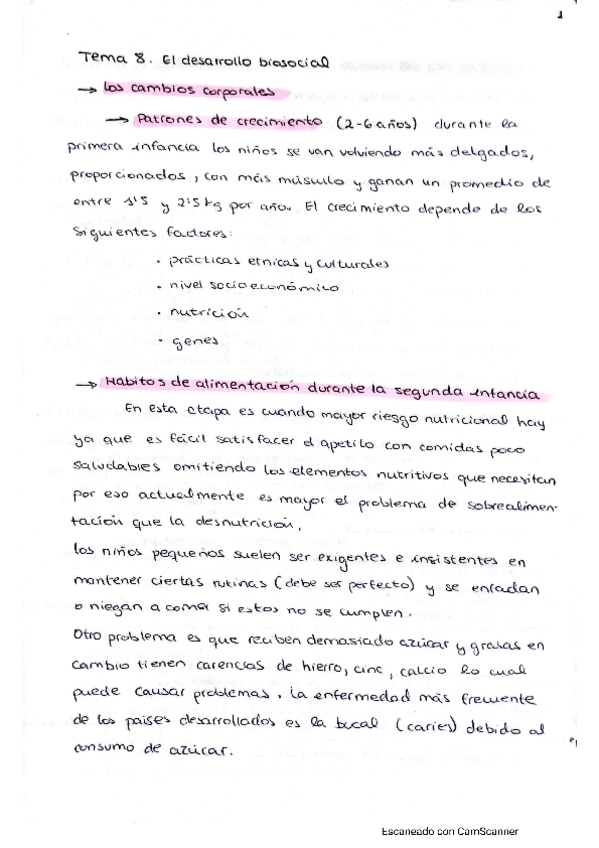 1
Tema 8. El desarrollo biosocial
→ los cambios corporales
→ Patrones de crecimiento (2-6 años) durante la
primera infancia los niños se van volviendo más delgados,
proporcionados, con más músculo y ganan un promedio de
entre 1'5 y 2'5 kg por año. El crecimiento depende de los
siguientes factores:
· prácticas etnicas y culturales
· nivel socioeconómico
· nutrición
· genes
→ Habitos de alimentación durante la segunda infancia
En esta etapa es cuando mayor riesgo nutricional hay
ya que es fácil satisfacer el apetito con comidas poco
saludables omitiendo los elementos nutritivos que necesitan
por eso actualmente es mayor el problema de sobrealimen-
tación que la desnutrición.
los niños pequeños suelen ser exigentes e insistentes en
mantener ciertas rutinas (debe ser perfecto) y se enfadan
o niegan a comer si estos no se cumplen.
Otro problema es que reciben demasiado azúcar y grasas en
cambio tienen carencias de hierro, cinc, calcio lo cual
puede causar problemas. la enfermedad más frecuente
de los países desarrollados es la bucal (caries) debido al
consumo de azúcar.
Escaneado con CamScanner